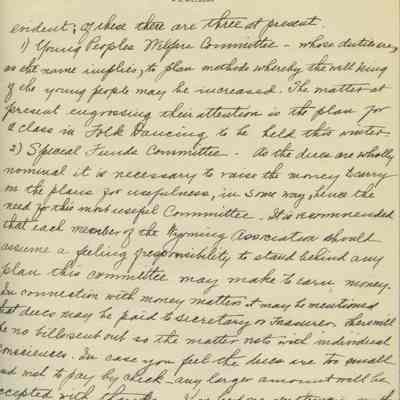 evident; of these there are three at present.
1) Young Peoples Welfare Committee - whose duties are,
as the name implies, to plan methods whereby the well being
of the young people may be increased. The matter at
present engrossing their attention is the plan for
a class in Folk Dancing to be held this winter.
2) Special Funds Committee - As the dues are wholly
nominal it is necessary to raise the money to carry
on the plans for usefulness, in some way, hence the
need for this most useful Committee. It is recommended
that each member of the Wyoming Association should
assume a feeling of responsibility to stand behind any
plan this committee may make to earn money.
In connection with money matters it may be mentioned
that dues may be paid to secretary or treasurer. There will
be no bills sent out so the matter rests with individual
consciences. In case you feel the dues are too small
and wish to pay by check - any larger amount will be
accepted with thanks